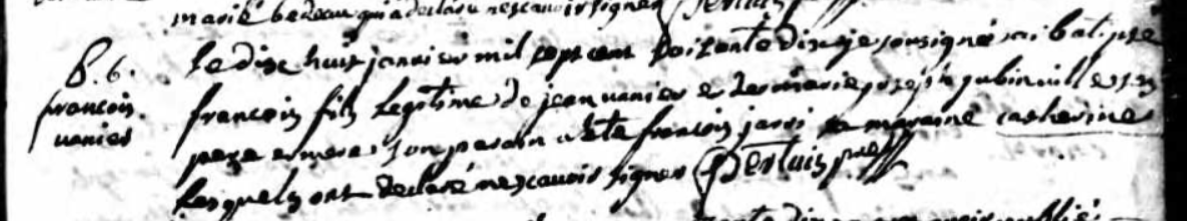 marie bedeau qui a declaré ne scavoir signer Pertuis ptre
B. 6.
francois
vanier
le dixe huit janvier mil sept cent soixante dix je sousigné ai batipze
francois fils legitime de jean vanier et de marie joseph gubinville ses
peze et mere son parain a été francois jarri sa maraine catherine
lesquels ont declaré ne scavoir signer Pertuis ptre